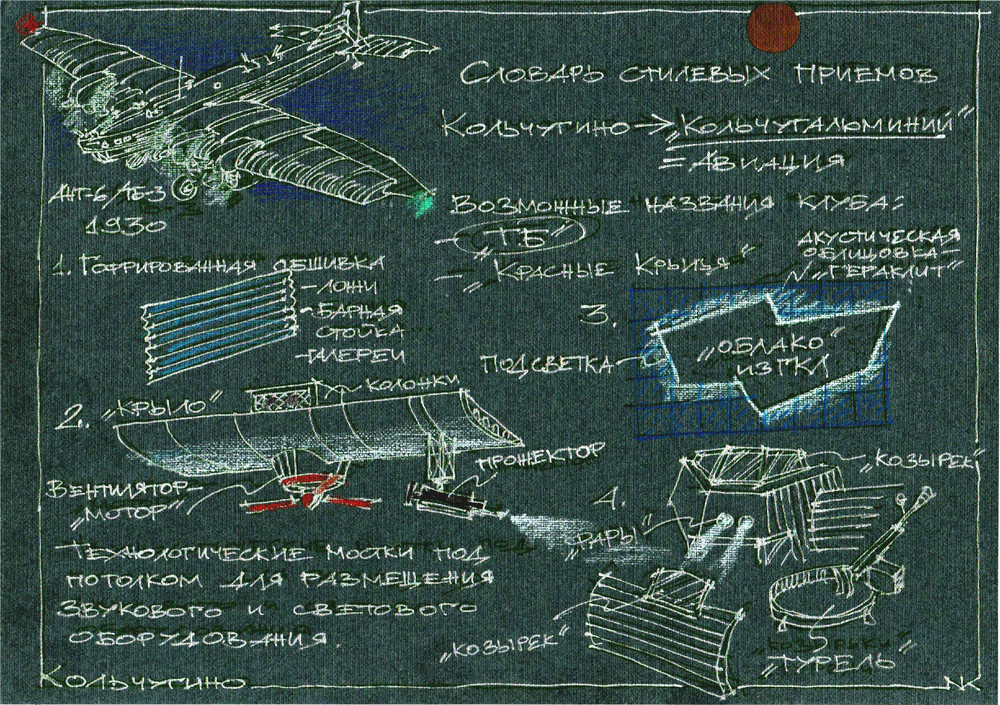 Словарь стилевых приемов
Кольчугино → „Кольчугалюминий“
= Авиация
АНТ-6/ТБ-3
1930
Возможные названия клуба:
– „Т.Б“
– „Красные Крылья“
1. Гофрированная обшивка
– ложи
– барная
стойка
– галереи
2. „Крыло“
колонки
прожектор
Вентилятор
„мотор“
Технологические мостки под
потолком для размещения
звукового и светового
оборудования.
3.
акустическая
облицовка
„Гераклит“
подсветка
„облако“
из ГКЛ
4.
„козырек“
„фары“
„козырек“
„турель“
Кольчугино
NK